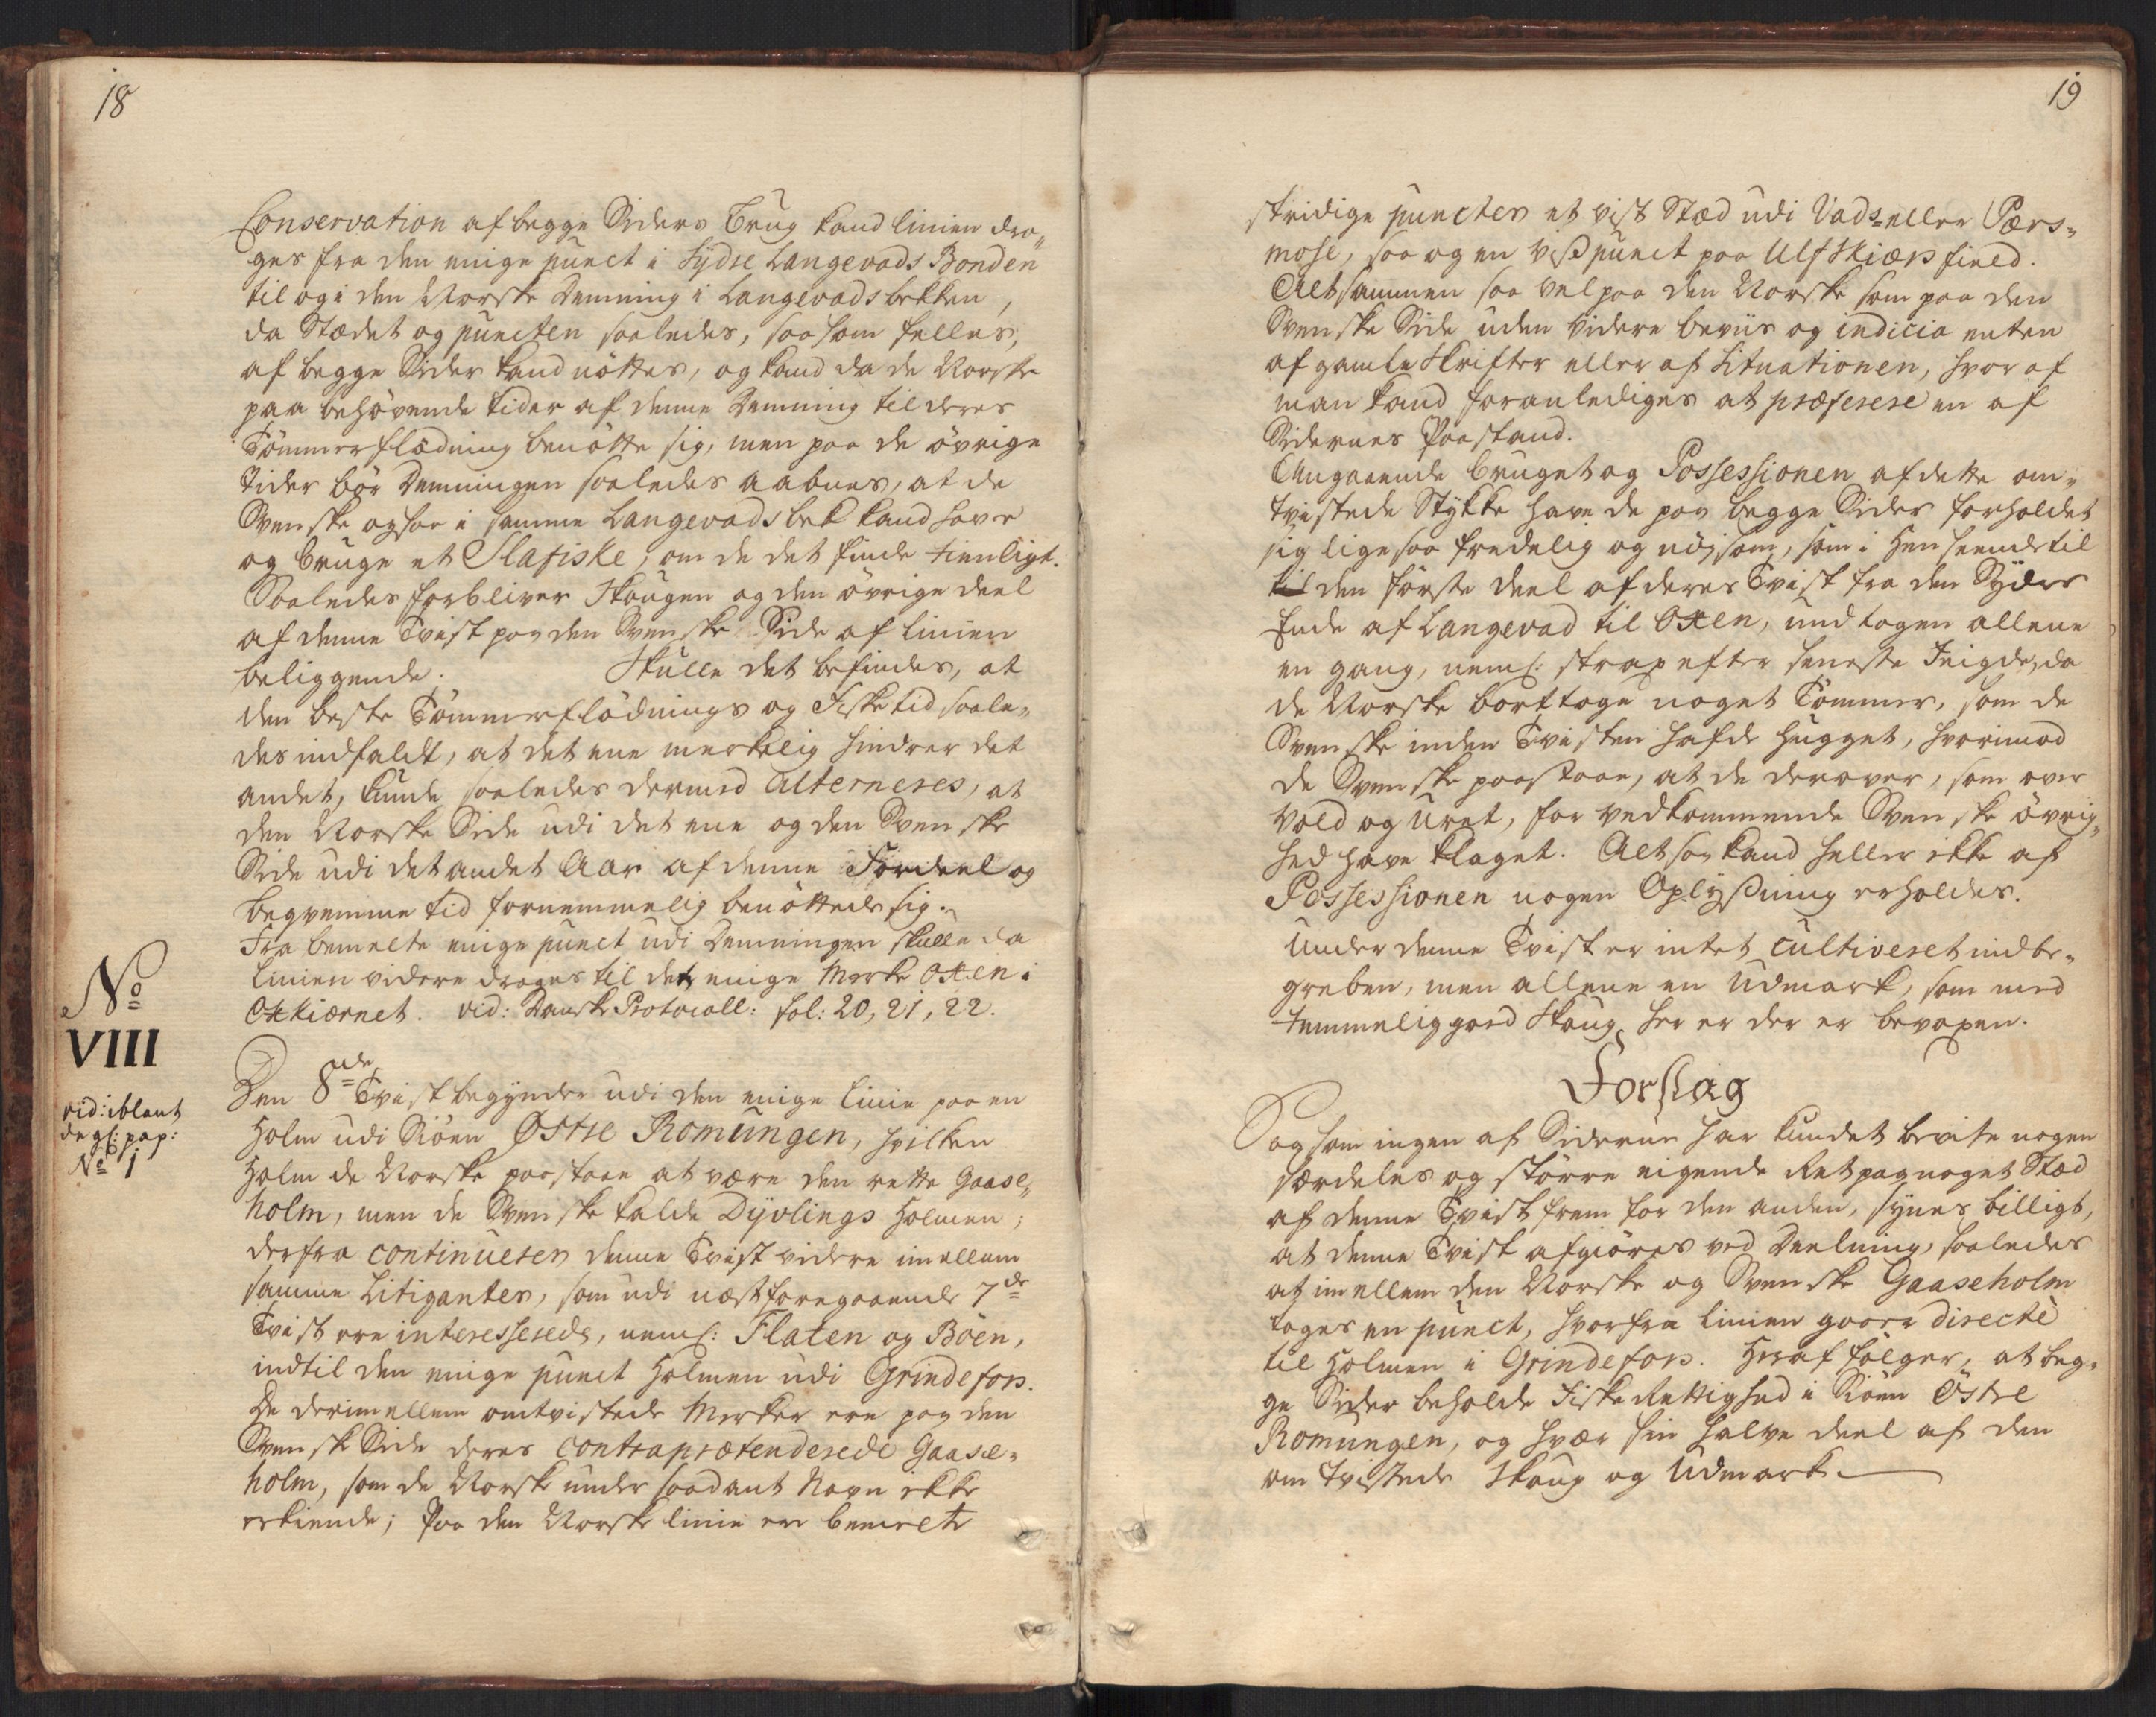 18
Conservation af begge Siders Brug kand linien dra„
ges fra den enige punct i Sydre Langevads Bonden
til og i den Norske Demning i Langevadsbekken,
da Stædet og puncten saaledes, saa som felles,
af begge Sider kand nöttes, og kand da de Norske
paa behövende tider af denne Demning til deres
Tömmerflödning benötte sig, men paa de övrige
Tider bör Demningen saaledes aabnes, at de
Svenske ogsaa i samme Langevadsbek kand have
og bruge et Slafiske, om de det finde tienligt.
Saaledes forbliver Skougen og den övrige deel
af denne Tvist paa den Svenske Side af linien
beliggende. Skulle det befindes, at
den beste Tömmerflödnings og Fisketid saale„
des indfaldt, at det ene merkelig hindrer det
andet, kunde saaledes dermed alterneres, at
den Norske Side udi det ene og den Svenske
Side udi det andet Aar af denne Fordeel og
beqvemme tid fornemmelig benöttede sig.
Fra bemelte enige punct udi Demningen skulle da
linien videre drages til det enige Merke Oxen i
Oxkiærnet. vid: Danske Protocoll: fol: 20, 21, 22.
No
VIII
vid: iblant
de gl: pap:
No 1
Den 8de Tvist begynder udi den enige linie paa en
Holm udi Siöen Østre Romungen, hvilken
Holm de Norske paastaae at være den rette Gaase„
holm, men de Svenske kalde Dyvlings Holmen;
derfra continuerer denne Tvist videre imellem
samme Litigantes, som udi næstforegaaende 7de
Tvist ere interesserede, neml: Flaten og Böen,
indtil den enige punct Holmen udi Grindefors.
De derimellem omtvistede Merker ere paa den
Svenske Side deres contraprætenderede Gaase„
holm, som de Norske under saadant Navn ikke
erkiende; Paa den Norske linie ere bemelte
19
stridige puncter et vist Stæd udi Vads- eller Pers„
mose, saa og en viss punct paa Ulfskiærs field.
Altsammen saa vel paa den Norske som paa den
Svenske Side uden videre beviis og indicia enten
af gamle Skrifter eller af Situationen, hvoraf
man kand foranlediges at præferere en af
Sidernes Paastand.
Angaaende bruget og Possessionen af dette om„
tvistede Stykke have de paa begge Sider forholdet
sig ligesaa fredelig og nöjsom, som i Henseende til
den förste deel af deres Tvist fra den Sydre
Ende af Langevad til Oxen, undtagen allene
en gang, neml: strax efter seneste Feigde, da
de Norske borttoge noget Tömmer, som de
Svenske inden Tvisten hafde hugget, hvorimod
de Svenske paastaae, at de derover, som over
Vold og Uret, for vedkommende Svenske övrig„
hed have klaget. Altsaa kand heller ikke af
Possessionen nogen Oplyssning erholdes.
Under denne Tvist er intet cultiveret indbe„
greben, men allene en Udmark, som med
temmelig god Skoug her er der er bevoxen.
Forslag
Saasom ingen af Siderne har kundet bevise nogen
særdeles og större eigende Ret paa noget Stæd
af denne Tvist frem for den anden, synes billigt,
at denne Tvist afgiöres ved Deelning, saaledes
at imellem den Norske og Svenske Gaaseholm
tages en punct, hvorfra linien gaaer directe
til Holmen i Grindefors. Heraf fölger, at beg„
ge Sider beholde Fiske Rettighed i Siöen Östre
Romungen, og hver sin halve deel af den
omtvistede Skoug og Udmark.